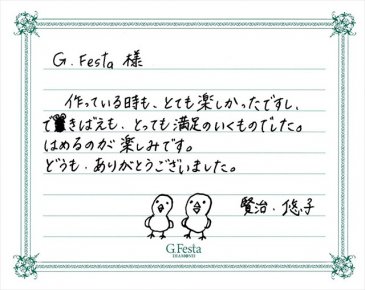 G.Festa 様
作っている時も、とても楽しかったですし、
できばえも、とっても満足のいくものでした。
はめるのが楽しみです。
どうも、ありがとうございました。
賢治・悠子
G.Festa
DIAMOND